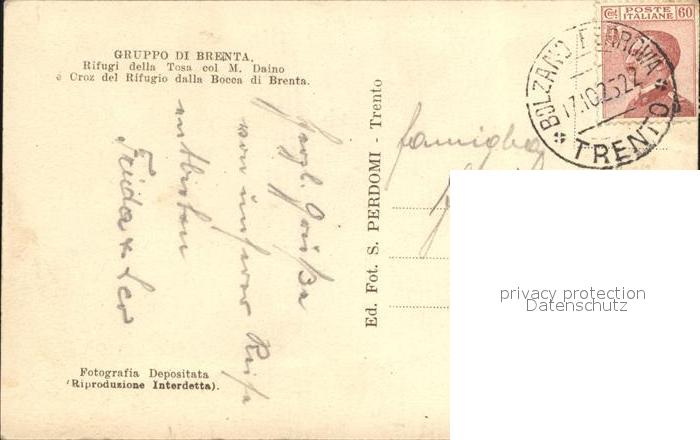 GRUPPO DI BRENTA.
Rifugi della Tosa col M. Daino
e Croz del Rifugio dalla Bocca di Brenta.
Herzl. Grüße
von unserer Reise
entbieten
Frieda & Leo
Fotografia Depositata
(Riproduzione Interdetta).
Ed. Fot. S. PERDOMI - Trento
famiglia
POSTE ITALIANE
Ct. 60
BOLZANO FERROVIA
17.10.25 22
TRENTO
privacy protection
Datenschutz